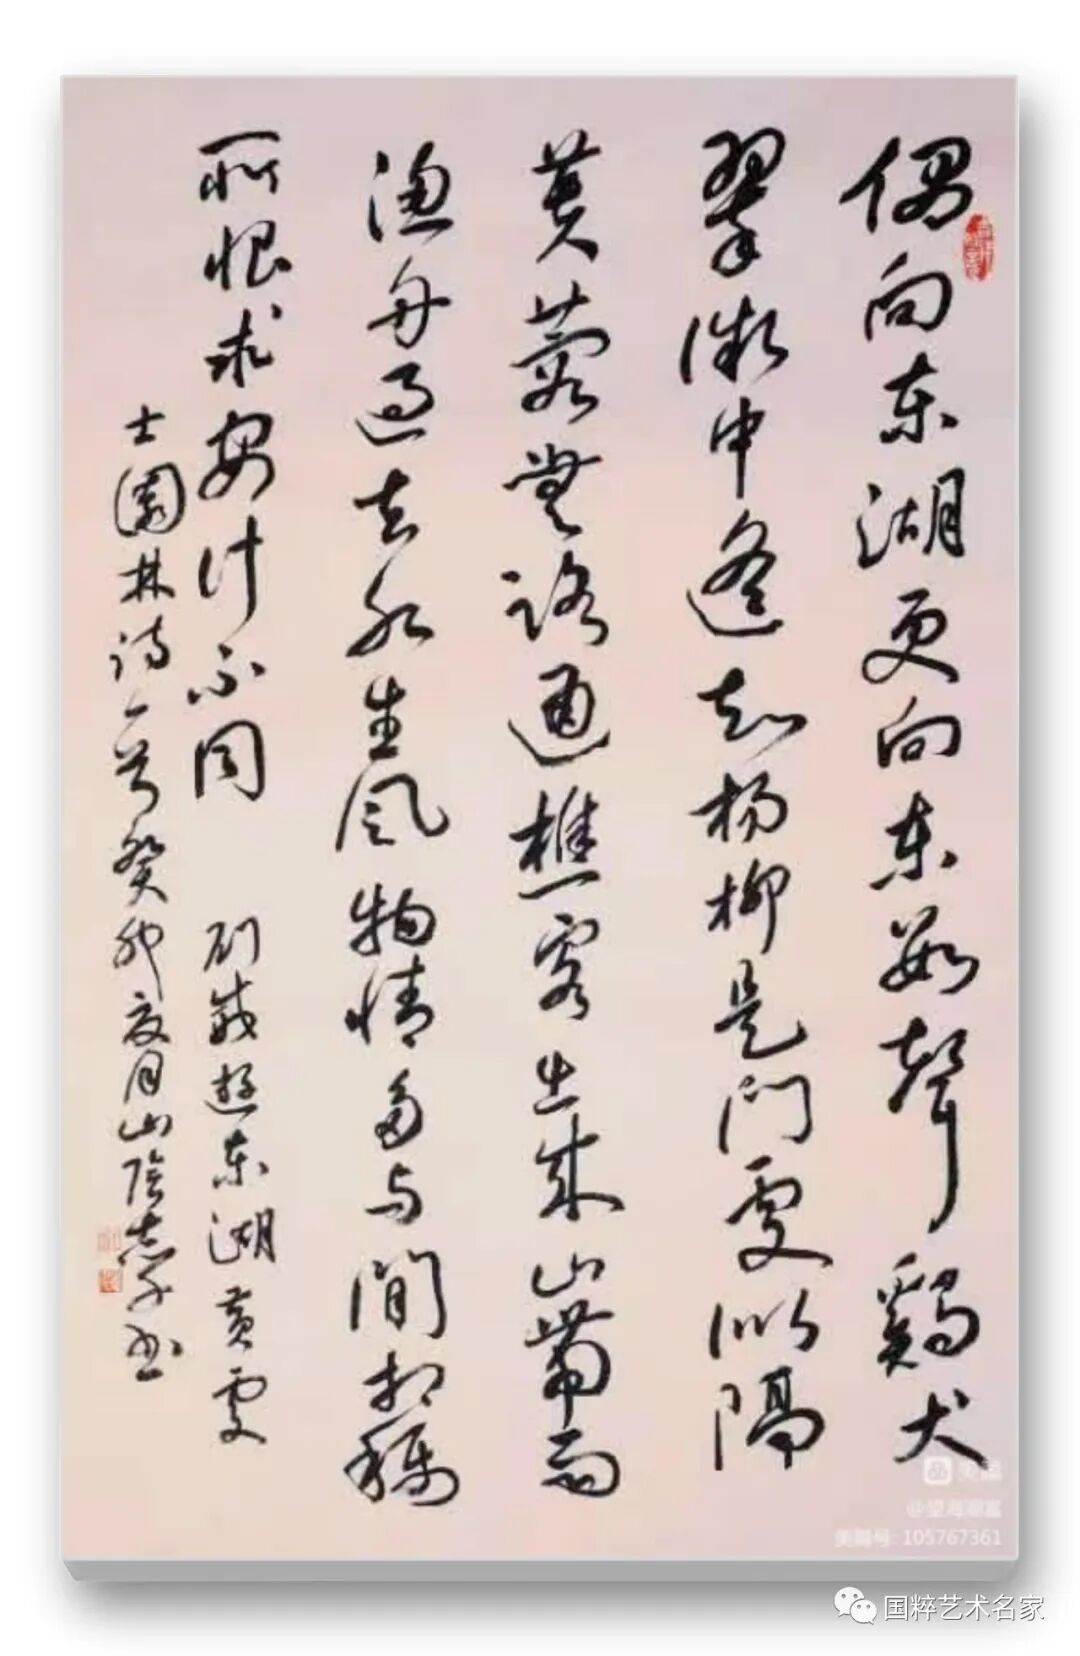 偶向东湖更向东数聲鷄犬
翠微中遥知杨柳是门處似隔
芙蓉無路通樵客出来山帶雨
渔舟过去水生风物情多与閒相稱
所恨求安计不同 刘威遊东湖黄處
士園林诗一首癸卯夏月山陰志书
美篇
美篇号: 105767361
国粹艺术名家